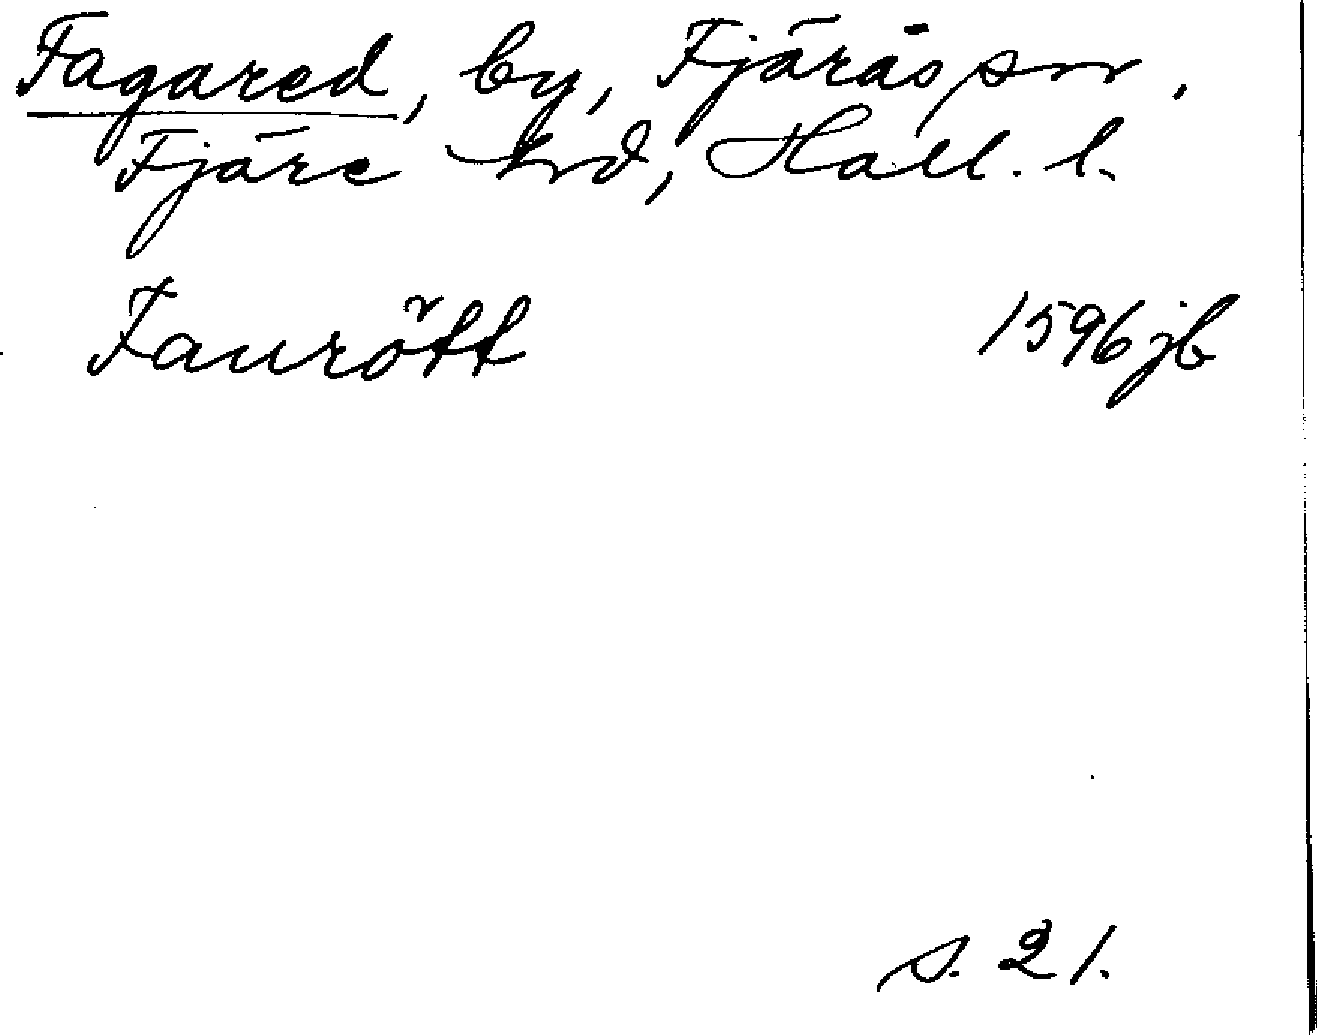 Fagared, by, Fjärås sn.
Fjäre hd, Hall. l.
Faurött 1596 jb
s. 21.